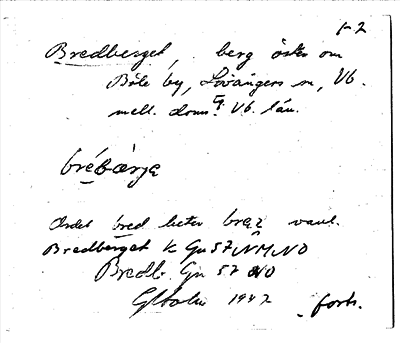 1-2
Bredberget, berg öster om
Böle by, Lövångers sn, Vb.
mell. doms. Vb. län.
brébærja
Ordet bred heter vanl.
Bredberget k Gu 57 NMNO
Bredb. Gu 57 NO
GHolm 1947 forts.